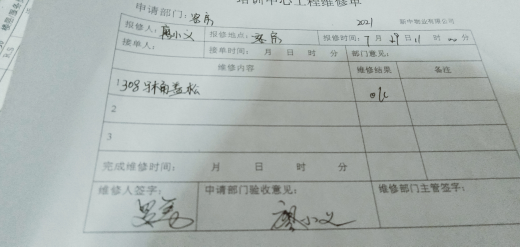 培训中心工程维修单
申请部门：客房 2021 新中物业有限公司
报修人：廖小义 报修地点：客房 报修时间：7月29日11时00分
接单人： 接单时间： 月 日 时 分 部门意见：
维修内容 维修结果 备注
1 308 马桶盖松 ok
2
3
完成维修时间： 月 日 时 分
维修人签字： 申请部门验收意见： 维修部门主管签字：
廖小义